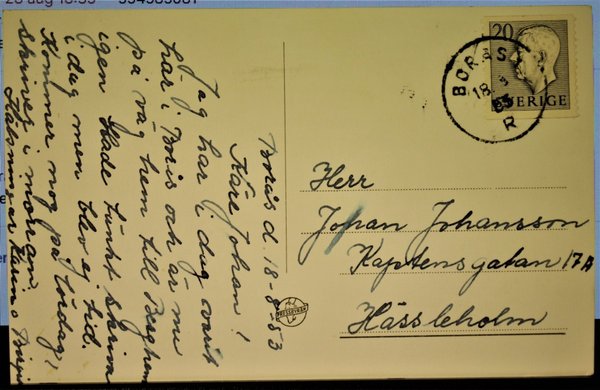 Borås d. 18-8-53
Käre Johan!
Jag har i dag varit
här i Borås och är nu
på väg hem till Berghem
igen. Hade tänkt skriva
i dag men blev ej tid.
Kommer nog på lördag!
skriver i morgon.
Hälsningar Karin o Birgit
20
SVERIGE
BORÅS
18
53
R
Herr
Johan Johansson
Kaptensgatan 17A
Hässleholm